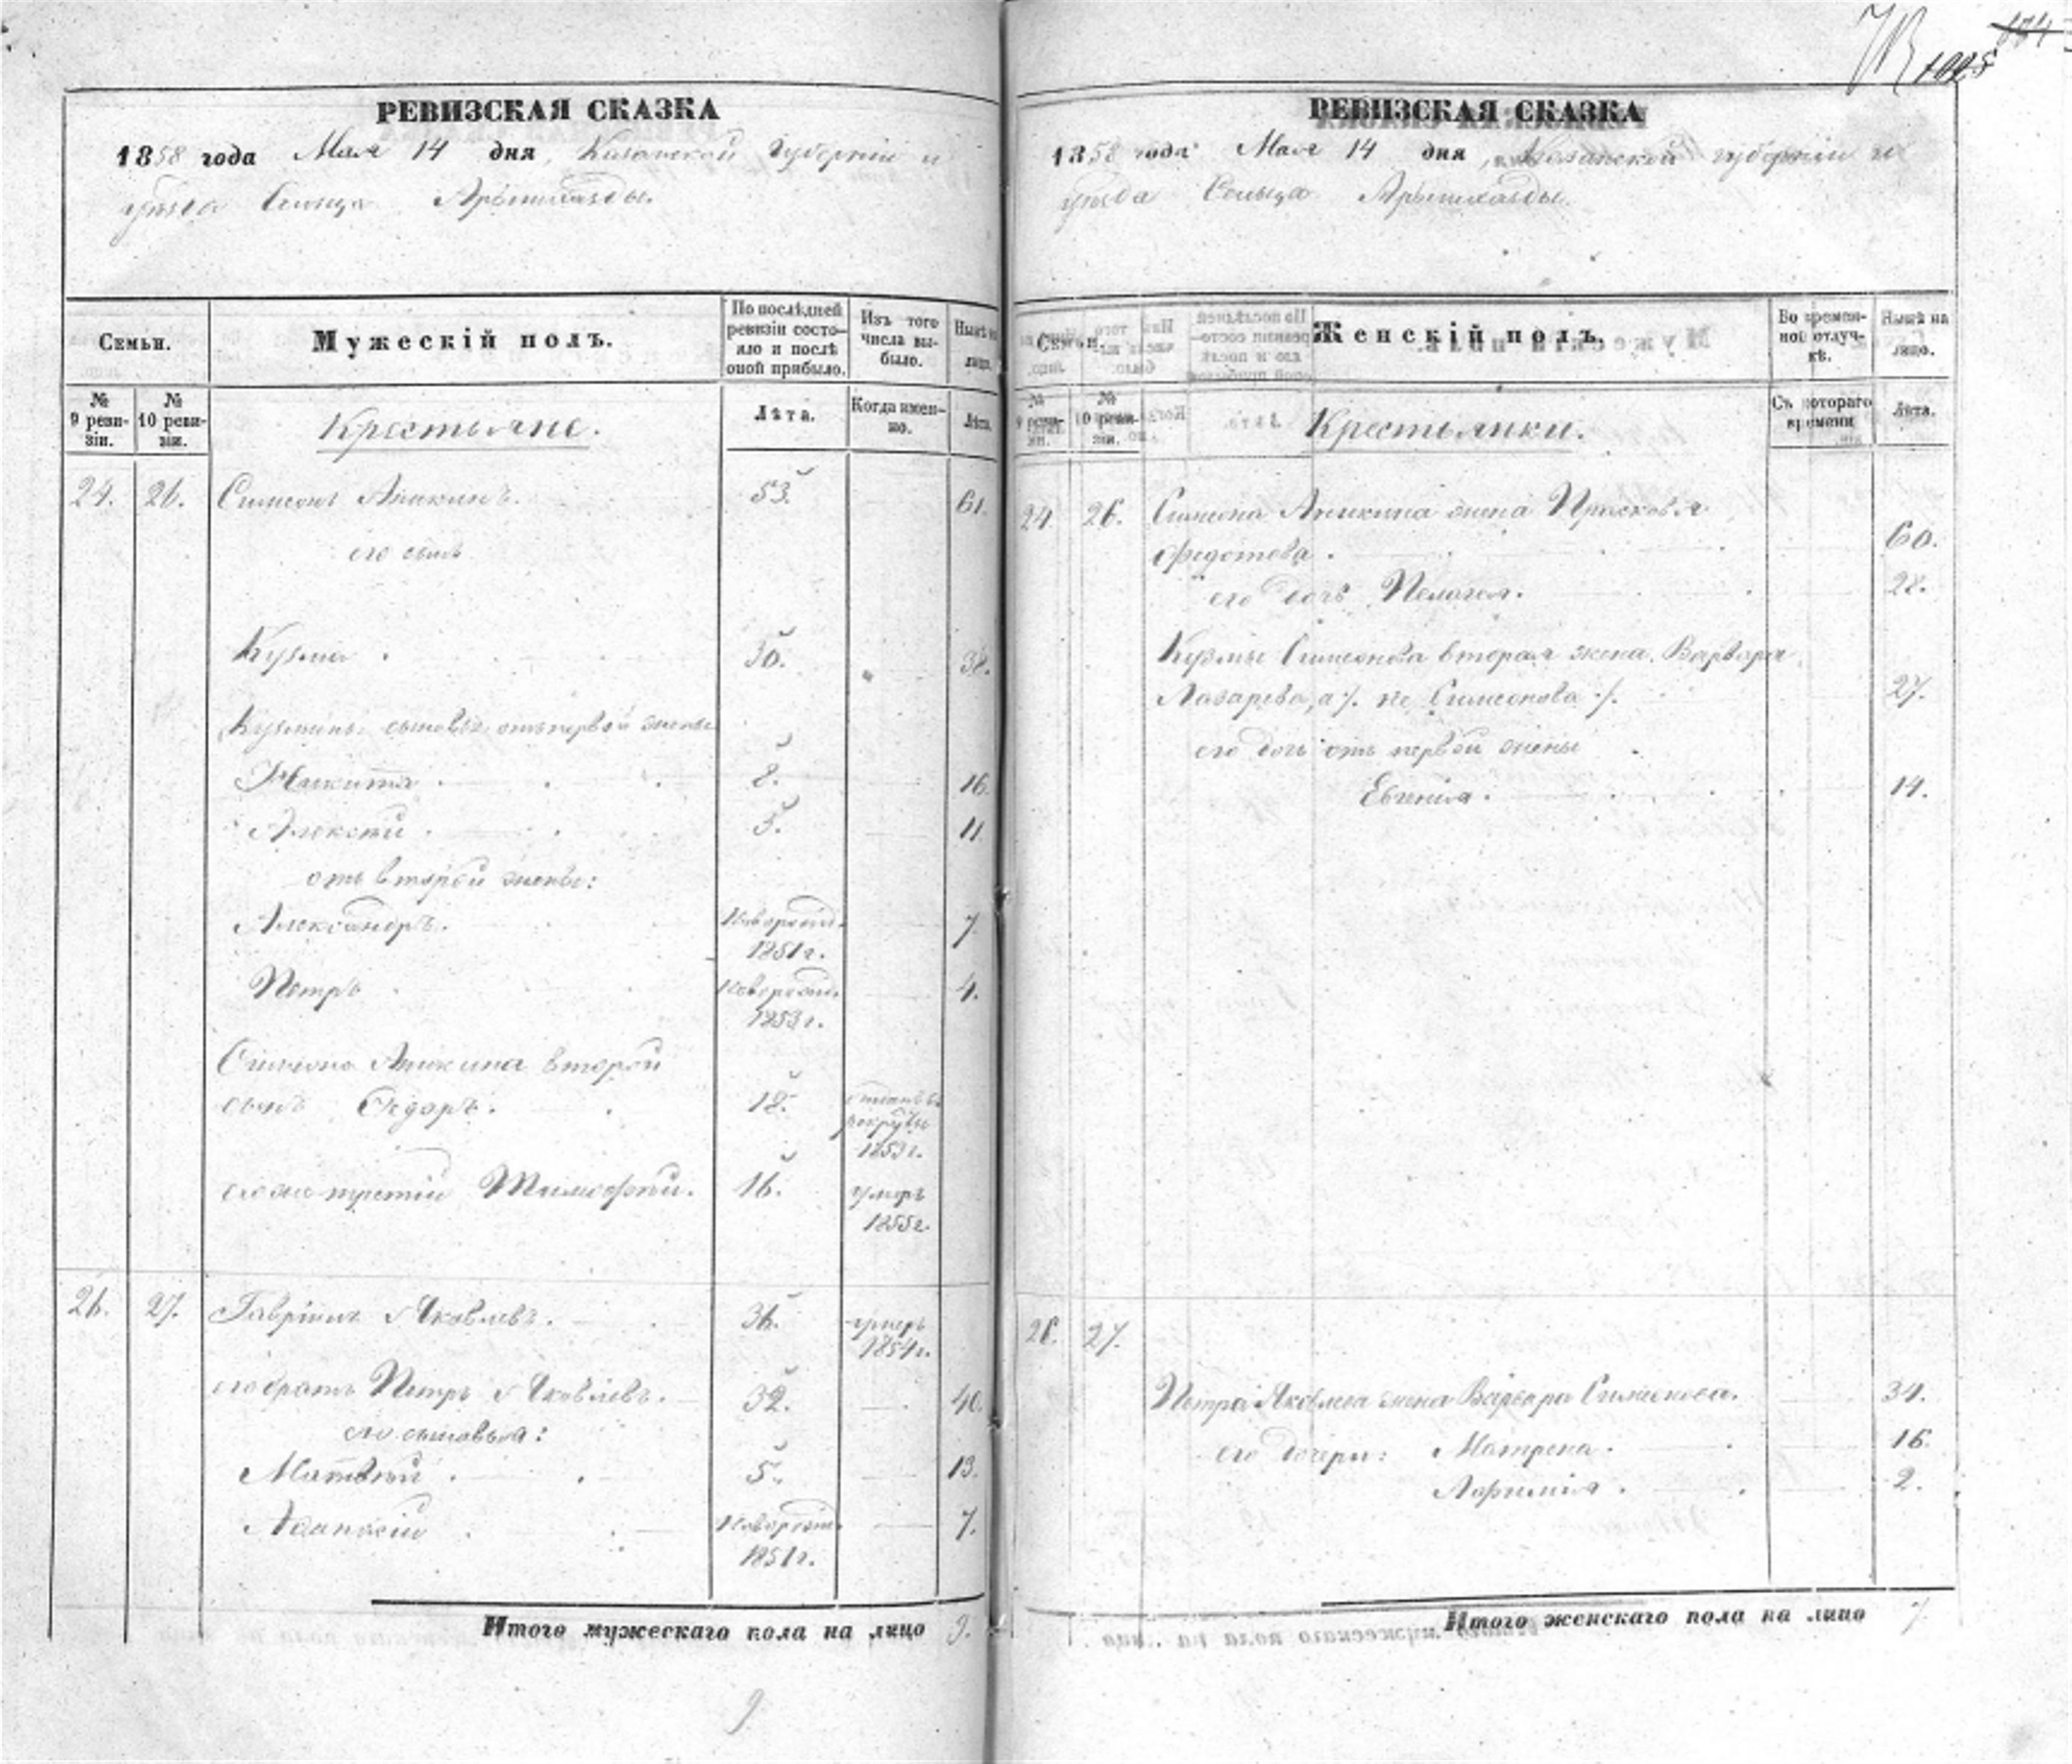 РЕВИЗСКАЯ СКАЗКА
1858 года Мая 14 дня, Казанской губернiи и
уѣзда Сельца Арышхазды.
Семьи.
Мужескiй полъ.
По послѣдней ревизiи состояло и послѣ оной прибыло.
Изъ того числа выбыло.
Нынѣ на лицо.
№ 9 ревизiи.
№ 10 ревизiи.
Крестьяне.
Лѣта.
Когда именно.
Лѣта.
24. 26. Симеонъ Аникинъ. 53. 61.
его сынъ
Кузма 30. 38.
Кузмины сыновья отъ первой жены
Никита 8. 16.
Алексѣй 3. 11.
отъ второй жены:
Александръ. Новорожд. 1851 г. 7.
Петръ Новорожд. 1853 г. 4.
Симеона Аникина второй
сынъ Ѳедоръ. 18. отданъ въ рекруты 1853 г.
его же третiй Тимофѣй. 16. умеръ 1855 г.
26. 27. Гаврiилъ Яковлевъ. 36. умеръ 1854 г.
его братъ Петръ Яковлевъ. 32. 40.
его сыновья:
Матвѣй 5. 13.
Афанасiй Новорожд. 1851 г. 7.
Итого мужескаго пола на лицо 9.
9
РЕВИЗСКАЯ СКАЗКА
1858 года Мая 14 дня, Казанской губернiи и
уѣзда Сельца Арышхазды.
Семьи.
Женскiй полъ.
Во временной отлучкѣ.
Нынѣ на лицо.
№ 9 ревизiи.
№ 10 ревизiи.
Крестьянки.
Съ котораго времени
Лѣта.
24 26. Симеона Аникина жена Прасковья
Федотова. 60.
его дочь Пелагея. 28.
Кузмы Симеонова вторая жена Варвара
Лазарева, а не Симеонова 27.
его дочь отъ первой жены
Евгенiя. 14.
26. 27.
Петра Яковлева жена Варвара Симеонова. 34.
его дочери: Матрена. 16.
2.
Итого женскаго пола на лицо 7.